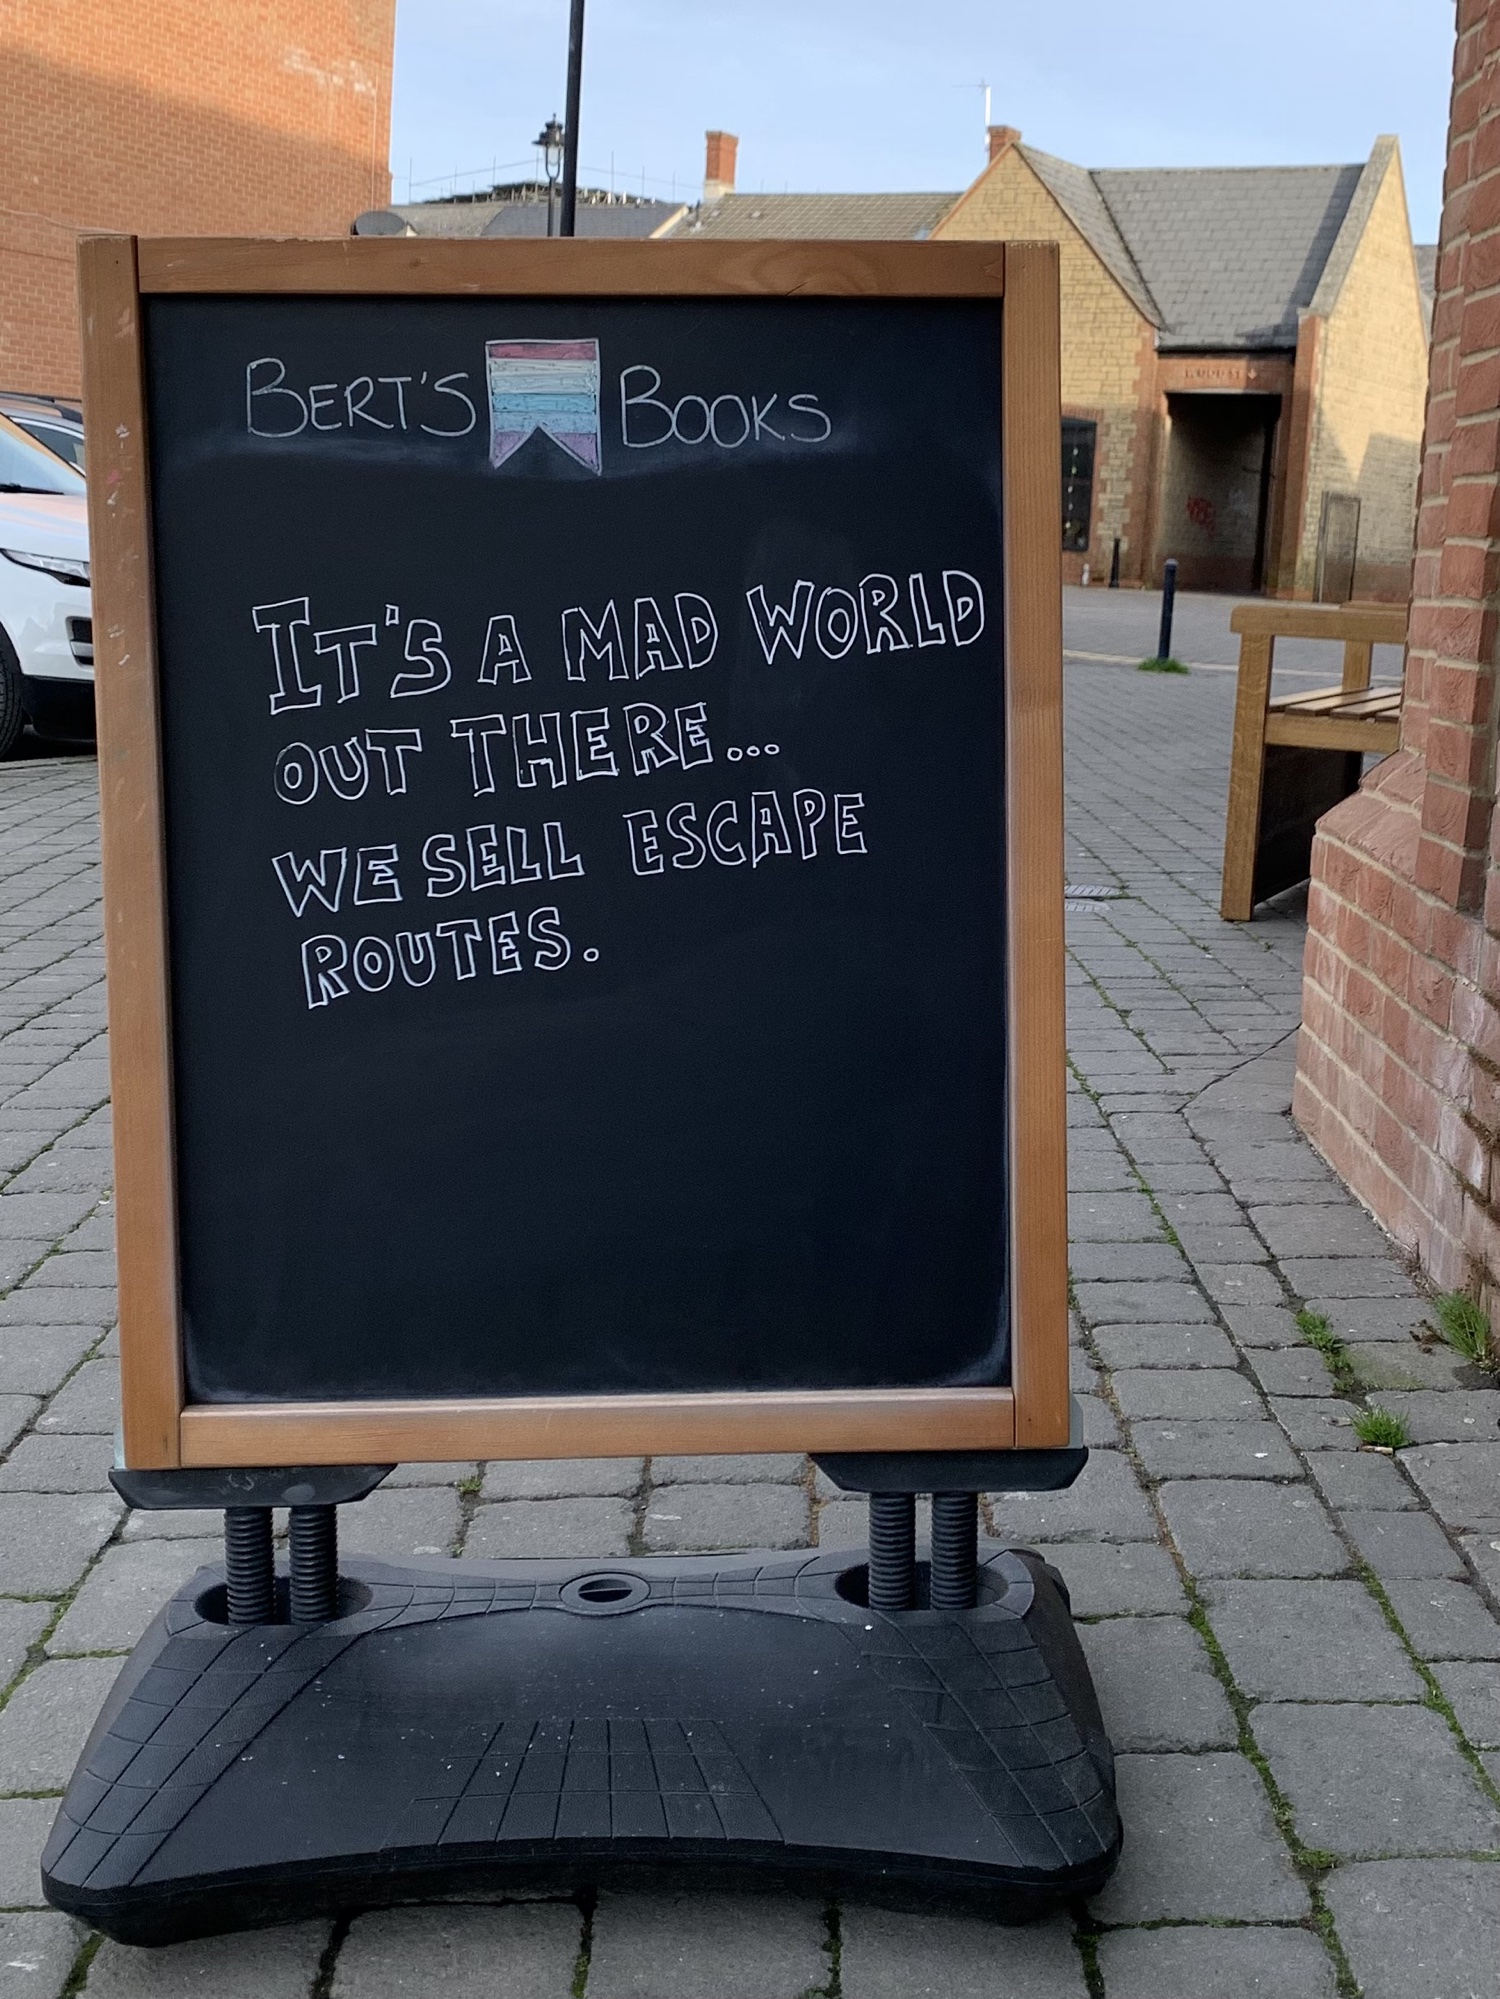 BERT'S BOOKS
IT'S A MAD WORLD
OUT THERE...
WE SELL ESCAPE
ROUTES.